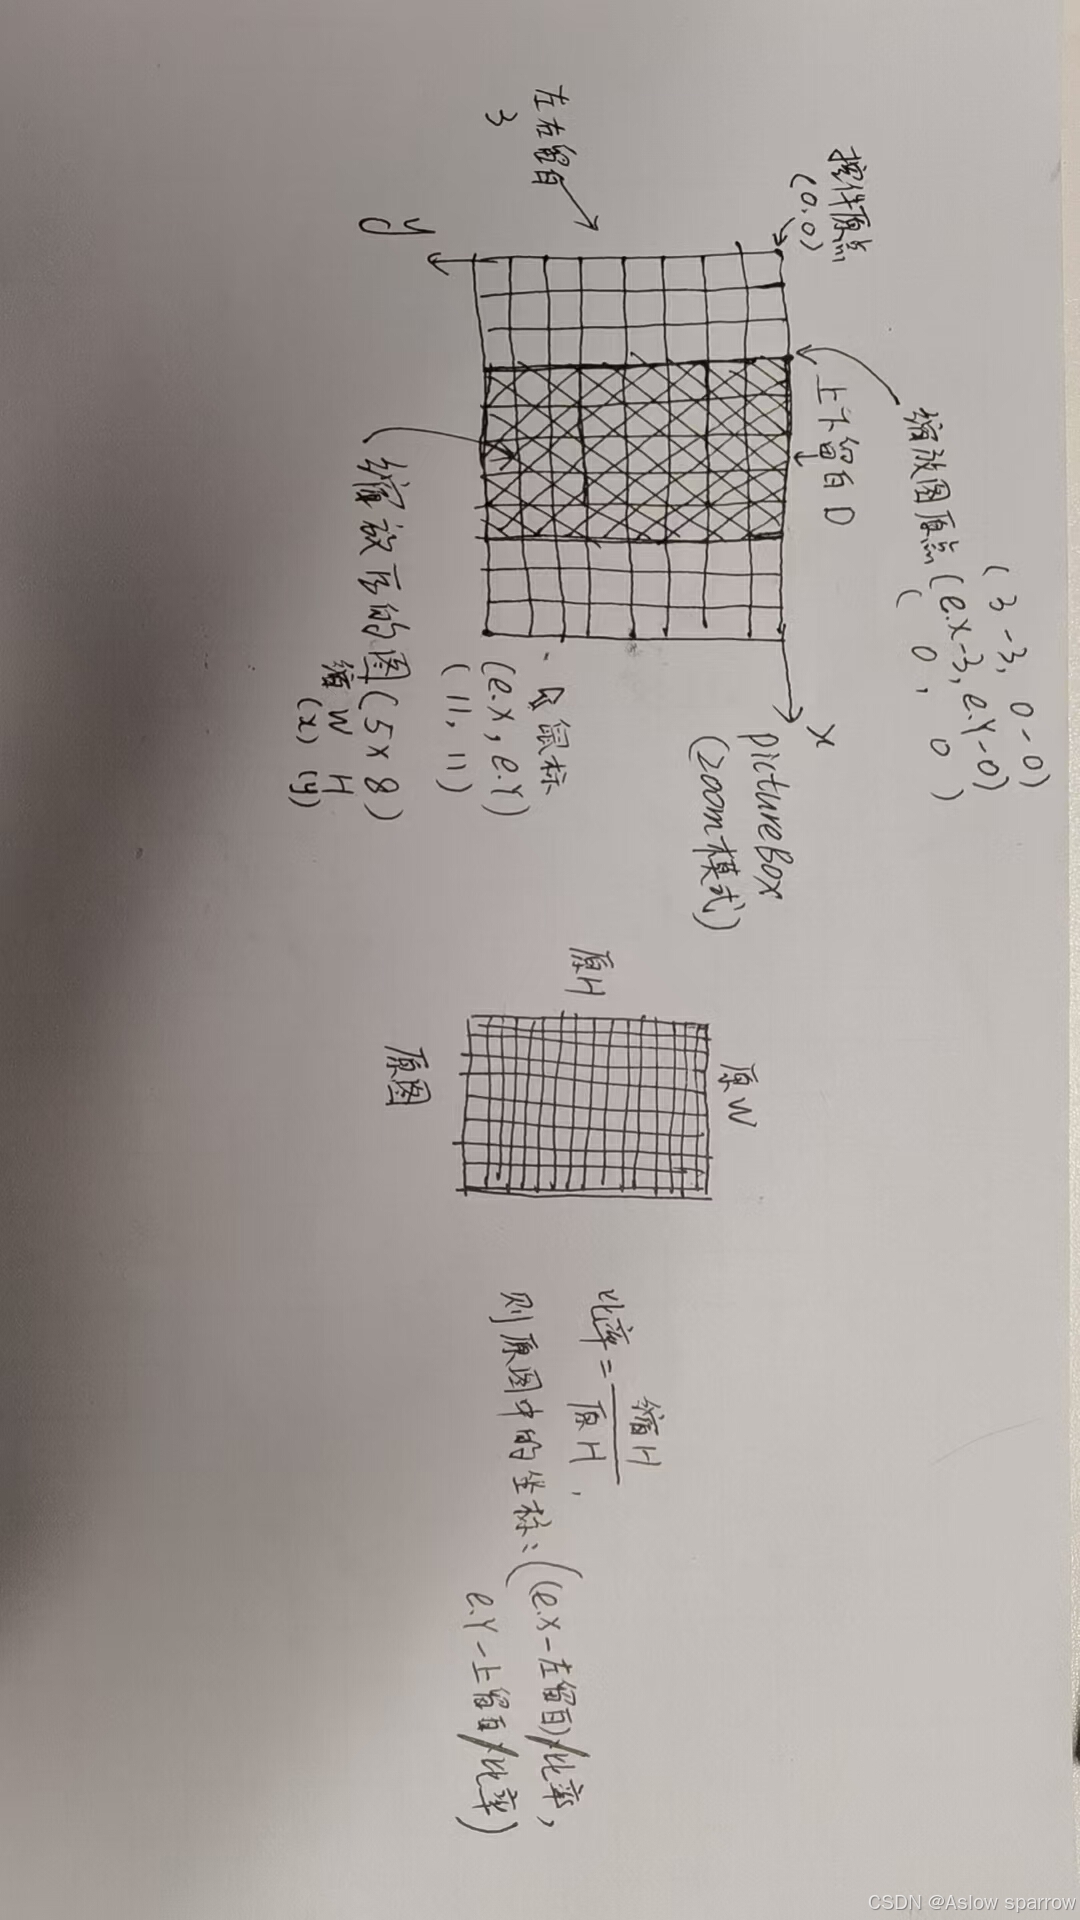 控件原点
(0,0)
左右留白
3
y
上下留白 0
缩放图原点 (e.X-3, e.Y-0)
(3-3, 0-0)
(0, 0)
x
pictureBox
(zoom模式)
鼠标
(e.X, e.Y)
(11, 11)
缩放后的图(5×8)
缩W H
(x) (y)
原H
原W
原图
比率=缩H/原H,
则原图中的坐标:((e.X-左留白)/比率,
e.Y-上留白/比率)
CSDN @Aslow sparrow